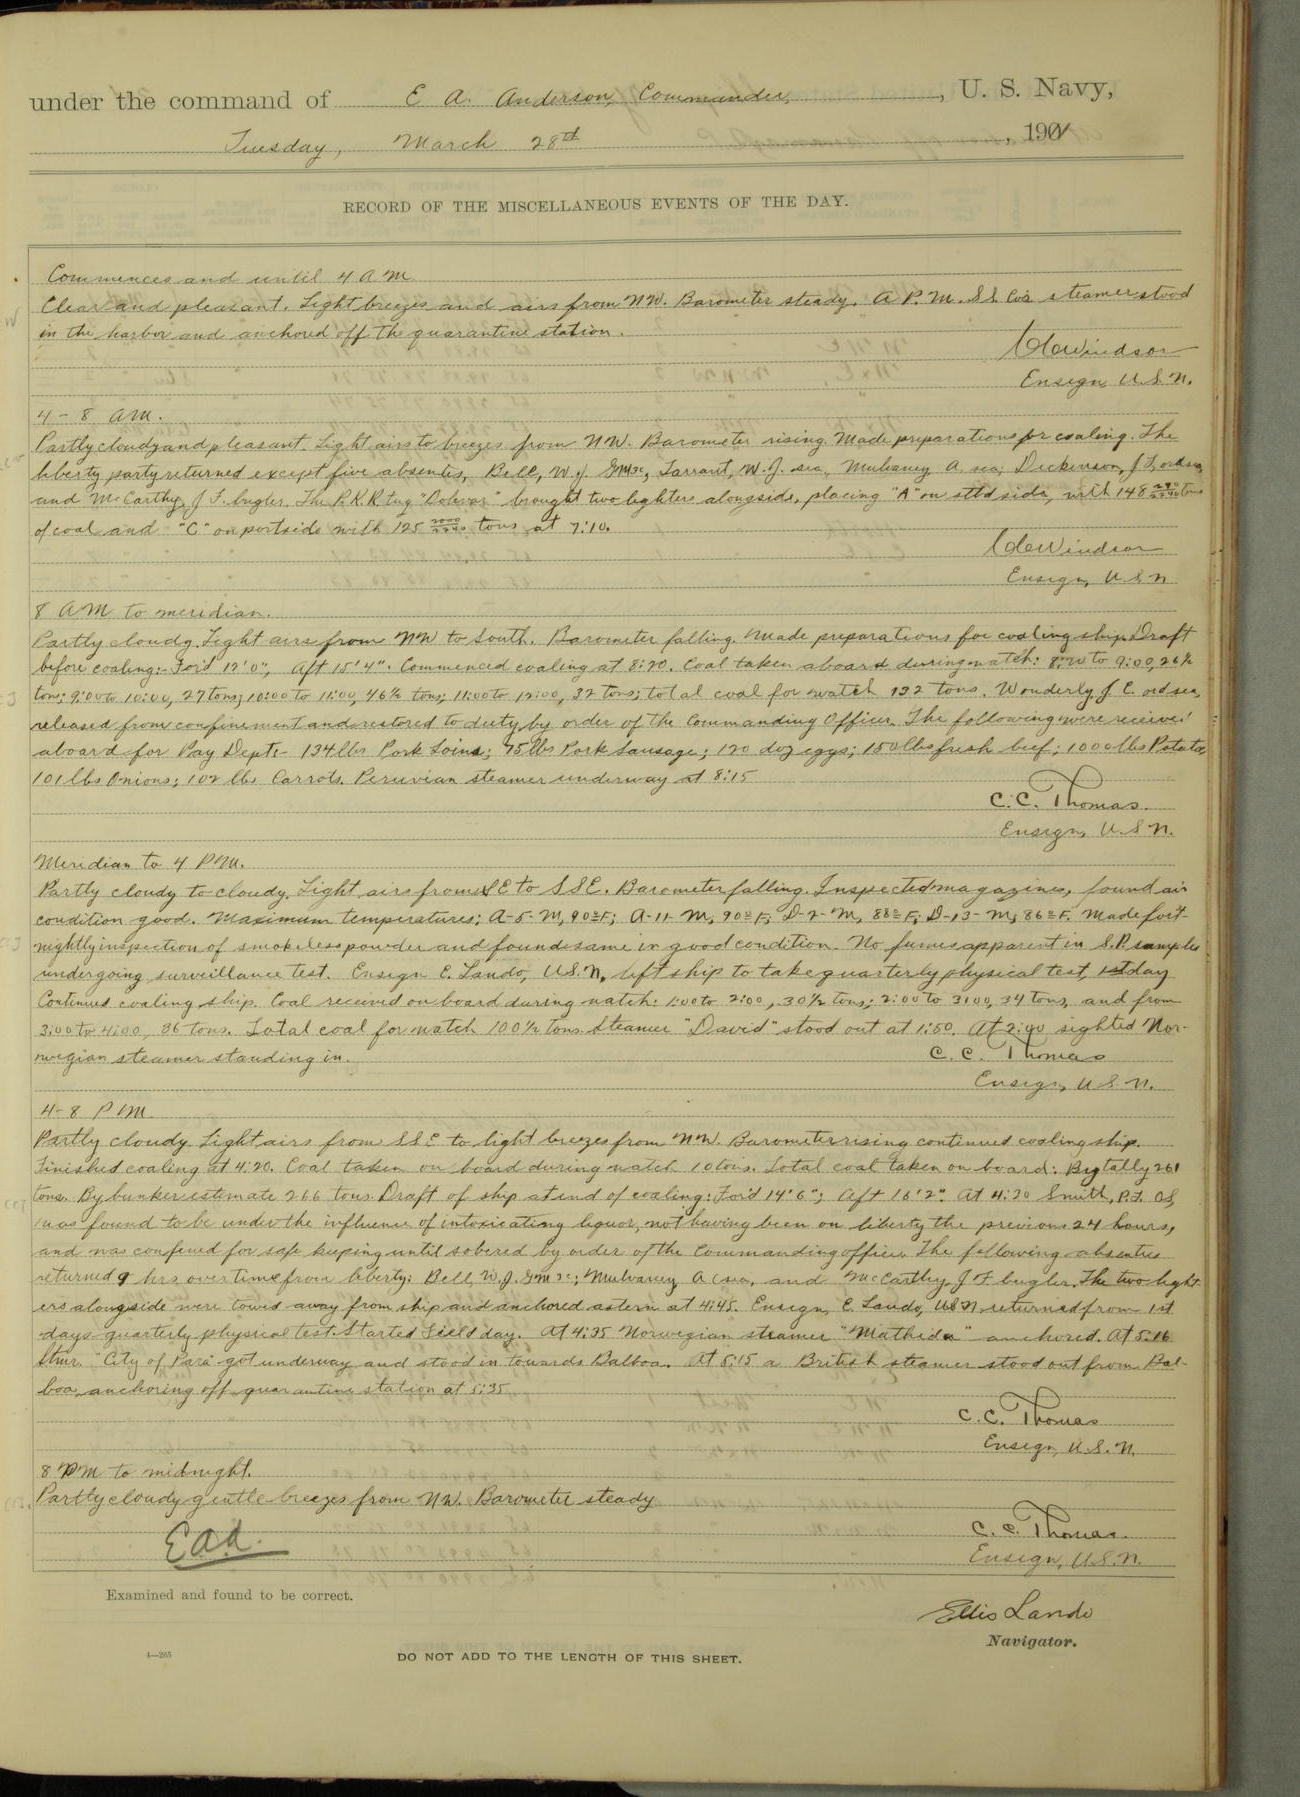 under the command of E A. Anderson, Commander, , U. S. Navy,
Tuesday, March 28th , 190
RECORD OF THE MISCELLANEOUS EVENTS OF THE DAY.
Commences and until 4 A M
Clear and pleasant. Light breezes and airs from NW. Barometer steady. A P.M. S.S. Co's steamer stood
in the harbor and anchored off the quarantine station.
Windsor
Ensign, U.S.N.
4 - 8 AM.
Partly cloudy and pleasant. Light airs to breezes from NW. Barometer rising. Made preparations for coaling. The
liberty party returned except five absentees, Bell, W.J. GM3c, Tarrant, W.J. sea, Mulvaney A sea, Dickenson, J F, ord sea,
and McCarthy, J F. bugler. The P.R.R tug "Bolivar" brought two lighters alongside, placing "A" on stbd side, with 148 tons
of coal and "C" on port side with 125 2000/2240 tons at 7:10.
Windsor
Ensign, U.S.N
8 AM to meridian.
Partly cloudy. Light airs from NW to South. Barometer falling. Made preparations for coaling ship. Draft
before coaling:- For'd 12'0", Aft 15'4". Commenced coaling at 8:20. Coal taken aboard during watch: 8:20 to 9:00, 26½
tons; 9:00 to 10:00, 27 tons; 10:00 to 11:00, 46½ tons; 11:00 to 12:00, 32 tons; total coal for watch 132 tons. Wonderly, J. C. ord sea,
released from confinement and restored to duty by order of the Commanding Officer. The following were received
aboard for Pay Dept:- 134 lbs Pork Loins; 75 lbs Pork Sausage; 120 doz eggs; 150 lbs fresh beef; 1000 lbs Potatoes
101 lbs Onions; 102 lbs Carrots. Peruvian steamer underway at 8:15
C. C. Thomas.
Ensign, U.S.N.
Meridian to 4 PM.
Partly cloudy to cloudy. Light airs from SE to SSE. Barometer falling. Inspected magazines, found air
condition good. Maximum temperatures; A-5-M, 90°F; A-11-M, 90°F; D-2-M, 88°F; D-13-M; 86°F. Made fort-
nightly inspection of smokeless powder and found same in good condition. No fumes apparent in S.P. samples
undergoing surveillance test. Ensign E. Lando, U.S.N. left ship to take quarterly physical test, 1st day
Continued coaling ship. Coal received on board during watch: 1:00 to 2:00, 30½ tons; 2:00 to 3:00, 34 tons, and from
3:00 to 4:00, 36 tons. Total coal for watch 100½ tons. Steamer "David" stood out at 1:50. At 2:40 sighted Nor-
wegian steamer standing in.
C. C. Thomas
Ensign, U.S.N.
4-8 PM
Partly cloudy. Light airs from SSE to light breezes from NW. Barometer rising continued coaling ship.
Finished coaling at 4:20. Coal taken on board during watch 10 tons. Total coal taken on board: By tally 261
tons. By bunker estimate 266 tons. Draft of ship at end of coaling: For'd 14'6"; Aft 16'2". At 4:20 Smith, P.F. OS,
was found to be under the influence of intoxicating liquor, not having been on liberty the previous 24 hours,
and was confined for safe keeping until sobered by order of the Commanding officer. The following absentees
returned 9 hrs overtime from liberty: Bell, W.J. GM3c; Mulvaney A sea, and McCarthy, J F. bugler. The two light-
ers alongside were towed away from ship and anchored astern at 4:45. Ensign, E. Lando, USN. returned from 1st
days quarterly physical test. Started field day. At 4:35 Norwegian steamer "Mathida" anchored. At 5:16
Stmr. "City of Para" got underway and stood in towards Balboa. At 5:15 a British steamer stood out from Bal-
boa, anchoring off quarantine station at 5:35
C. C. Thomas
Ensign, U.S.N.
8 PM to midnight.
Partly cloudy gentle breezes from NW. Barometer steady
C. C. Thomas.
E.A.A.
Ensign, U.S.N.
Examined and found to be correct.
Ellis Lando
Navigator.
4—265
DO NOT ADD TO THE LENGTH OF THIS SHEET.